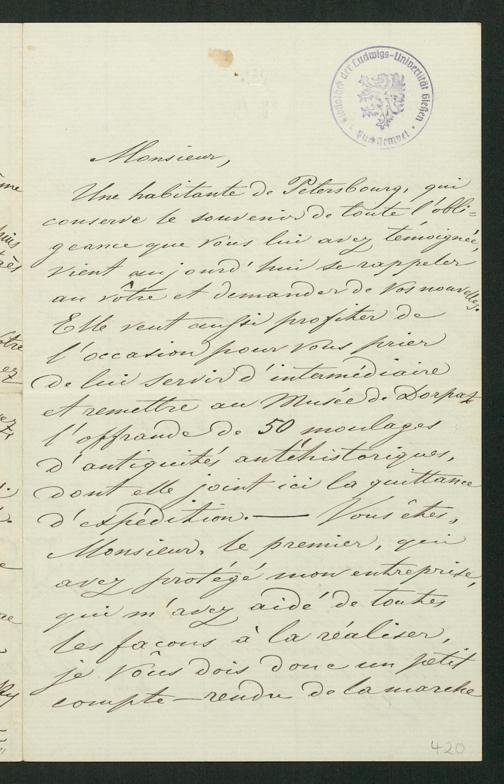 Bibliothek der Ludwigs-Universität Gießen
Monsieur,
Une habitante de Petersbourg, qui
conserve le souvenir de toute l'obli=
geance que Vous lui avez temoignée,
vient aujourd'hui se rappeler
au vôtre et demander de Vos nouvelles.
Elle veut aussi profiter de
l'occasion pour Vous prier
de lui servir d'intermédiaire
et remettre au Musée de Dorpat
l'offrande de 50 moulages
d'antiquités antéhistoriques,
dont elle joint ici la quittance
d'expédition. — Vous êtes,
Monsieur, le premier, qui
avez protégé mon entreprise,
qui m'avez aidé de toutes
les façons à la réaliser,
je Vous dois donc un petit
compte-rendu de la marche
420